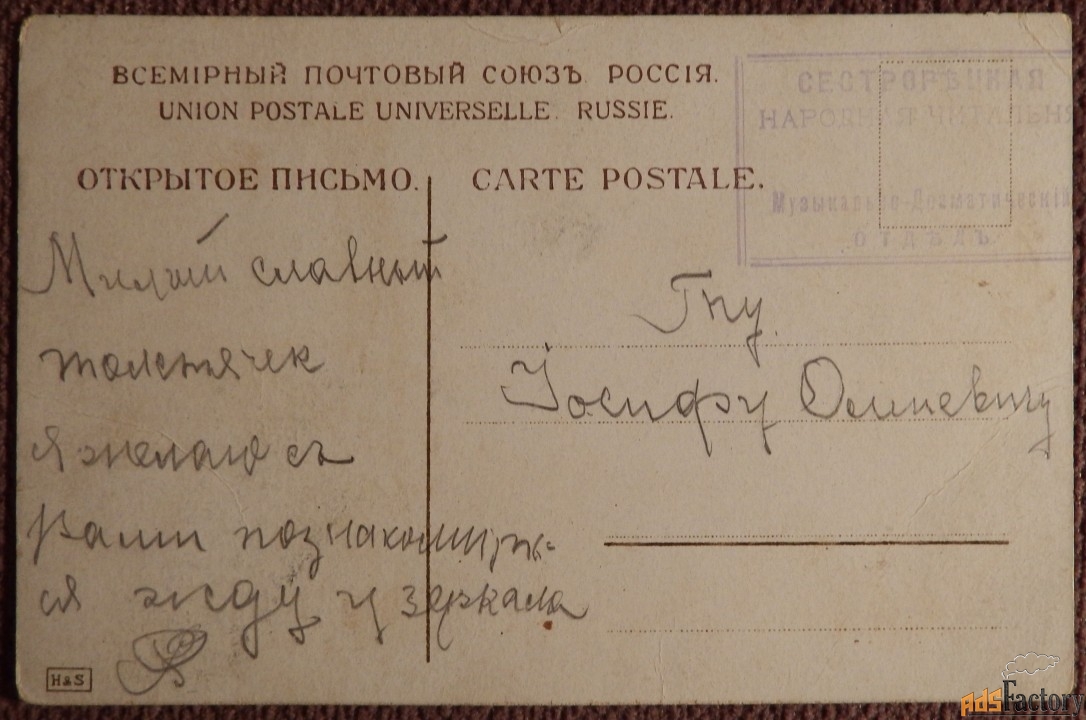 ВСЕМІРНЫЙ ПОЧТОВЫЙ СОЮЗЪ. РОССІЯ.
UNION POSTALE UNIVERSELLE. RUSSIE.
ОТКРЫТОЕ ПИСЬМО.
CARTE POSTALE.
СЕСТРОРѢЦКАЯ
НАРОДНАЯ ЧИТАЛЬНЯ
Музыкально-Драматическій
ОТДѢЛЪ
Милый славный
толстячек
я желаю съ
Вами познакомить-
ся жду у зеркала
Гну
Іосифу Осиповичу
H&S
AdsFactory